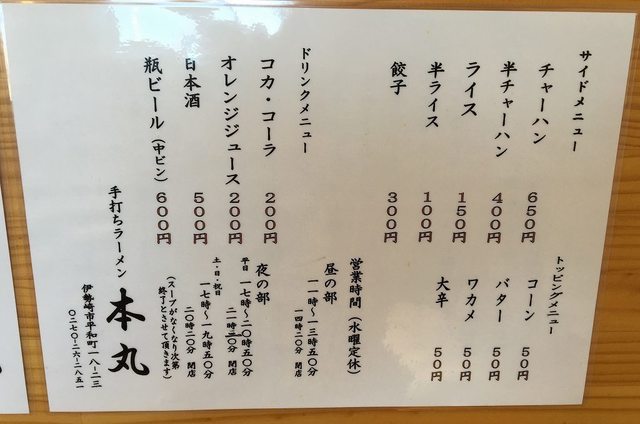 サイドメニュー
チャーハン 650円
半チャーハン 400円
ライス 150円
半ライス 100円
餃子 300円
トッピングメニュー
コーン 50円
バター 50円
ワカメ 50円
大辛 50円
ドリンクメニュー
コカ・コーラ 200円
オレンジジュース 200円
日本酒 500円
瓶ビール（中ビン） 600円
営業時間（水曜定休）
昼の部
一一時～一三時五〇分
一四時二〇分 閉店
夜の部
平日 一七時～二〇時五〇分
二一時二〇分 閉店
土・日・祝日 一七時～一九時五〇分
二〇時二〇分 閉店
（スープがなくなり次第
終了とさせて頂きます）
手打ちラーメン 本丸
伊勢崎市平和町一八-二三
〇二七〇-二六-二八五一